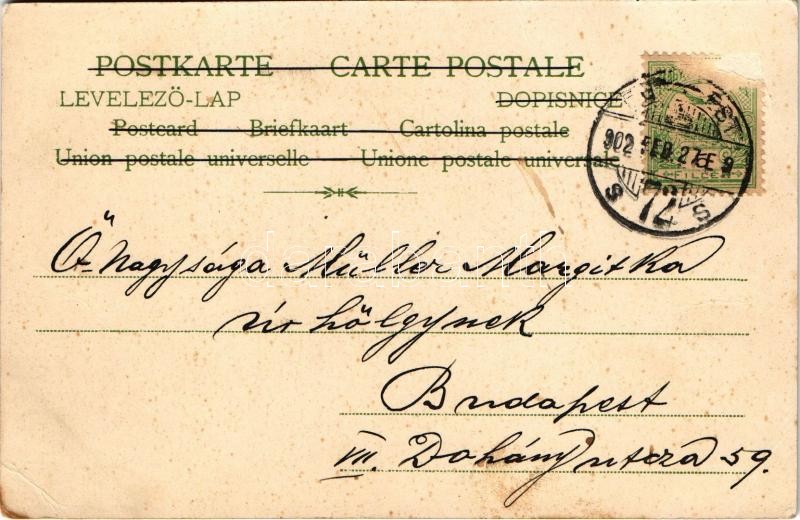 POSTKARTE CARTE POSTALE
LEVELEZÖ-LAP DOPISNICE
Postcard Briefkaart Cartolina postale
Union postale universelle Unione postale universale
EST
902 FEB. 27 E 9
FILLÉR
S 72 S
Ő Nagysága Müller Margitka
úrhölgynek
Budapest
VII. Dohány utcza 59.